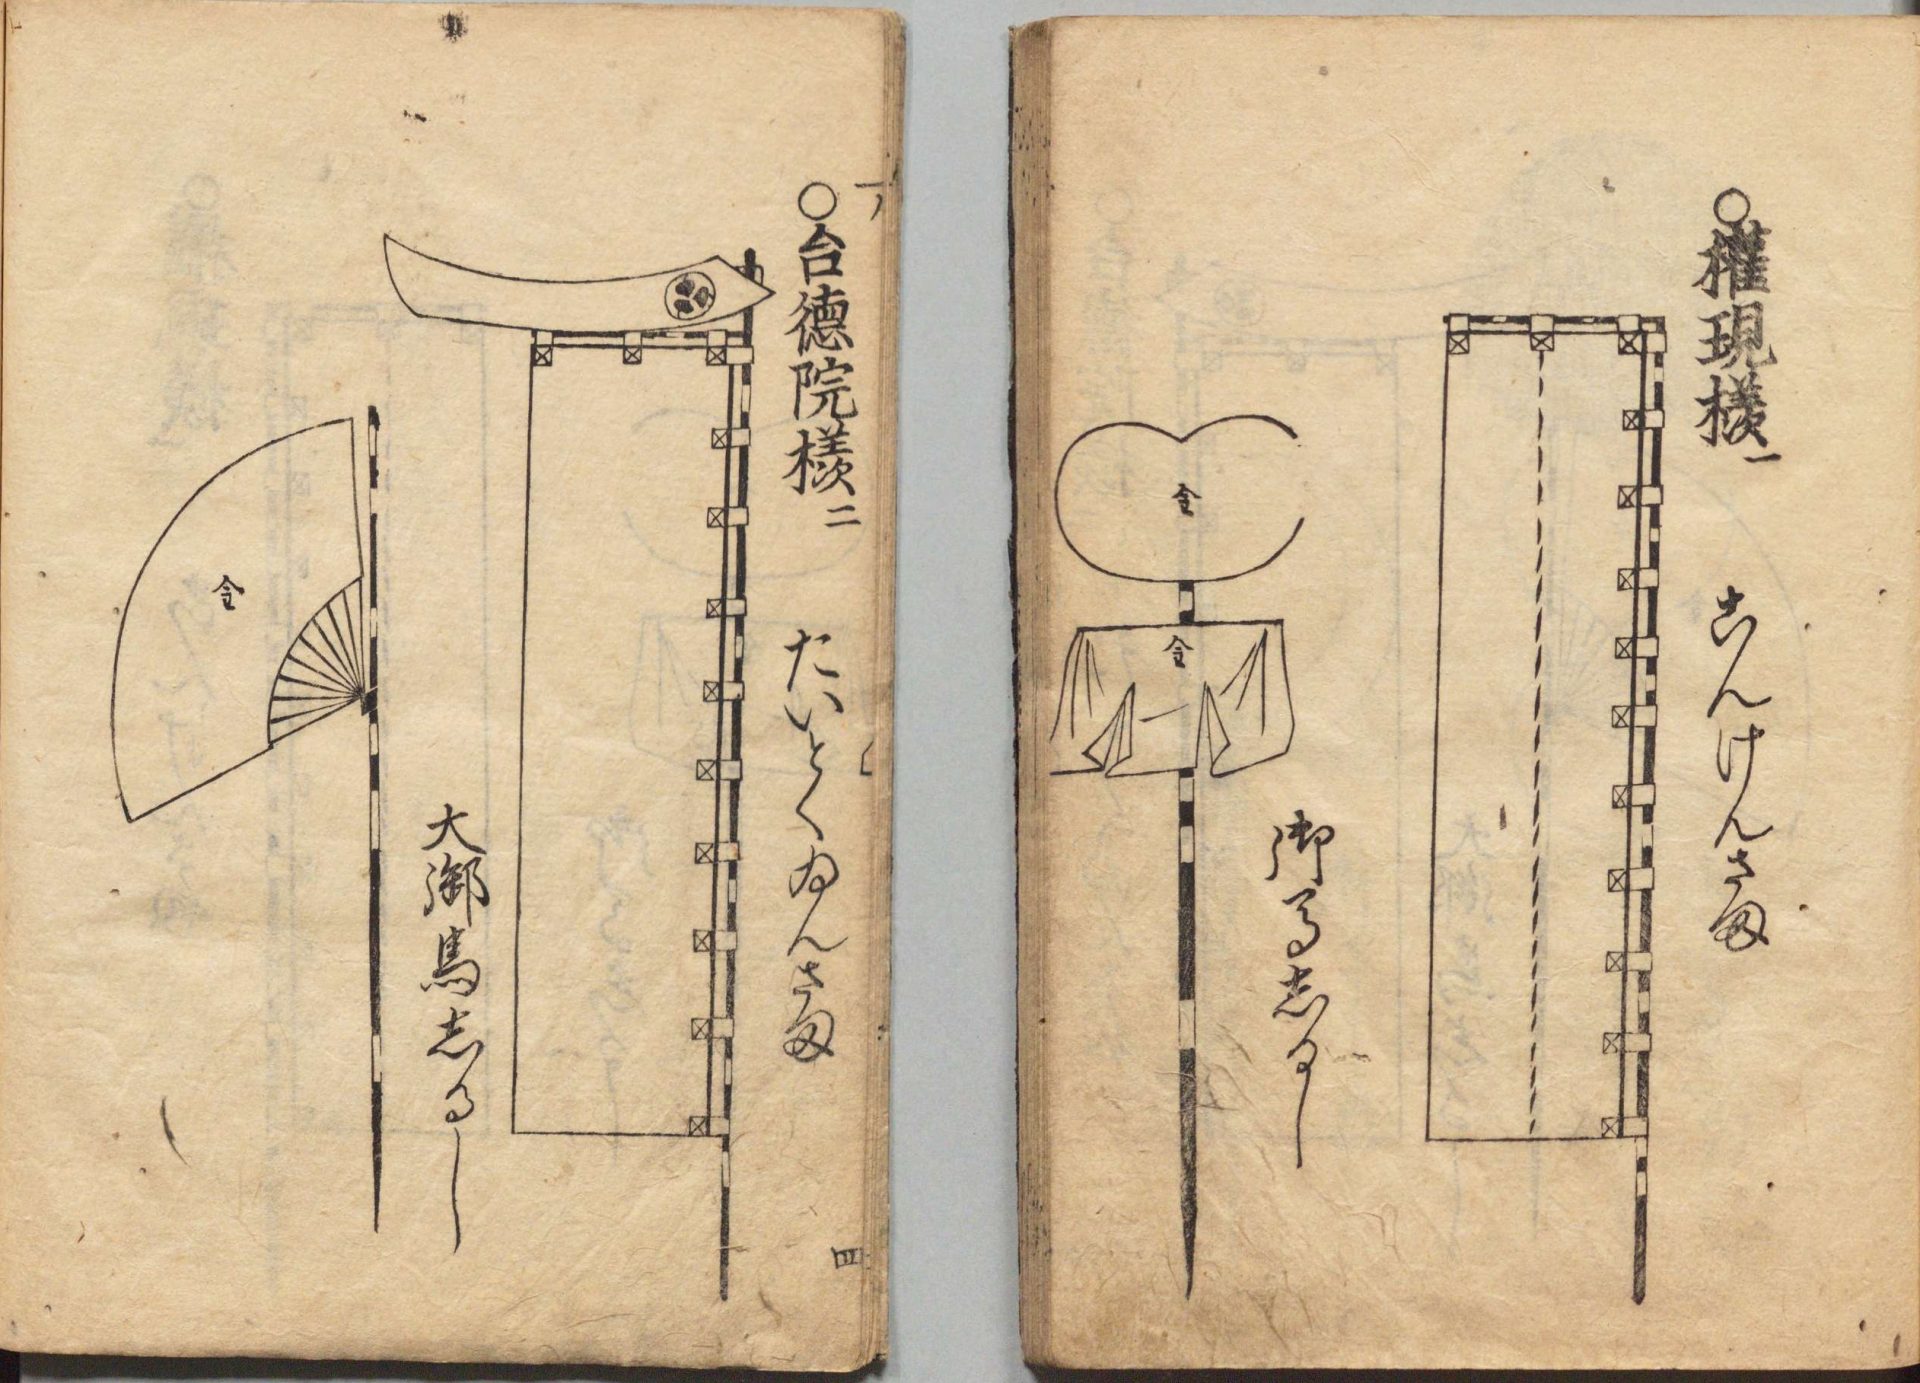 ○權現様一
こんけんさま
御馬志るし
金
金
○台徳院様二
たいとくゐんさま
大御馬志るし
金
四